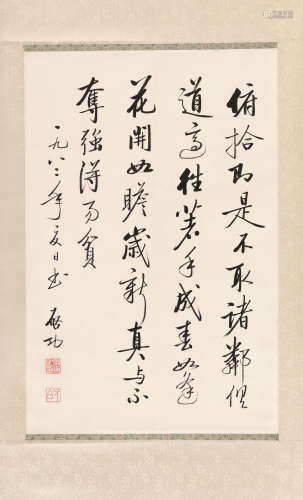 俯拾即是不取諸鄰俱
道適往著手成春如逢
花開如瞻歲新真與不
奪強得易貧
一九八三年夏日書 啟功